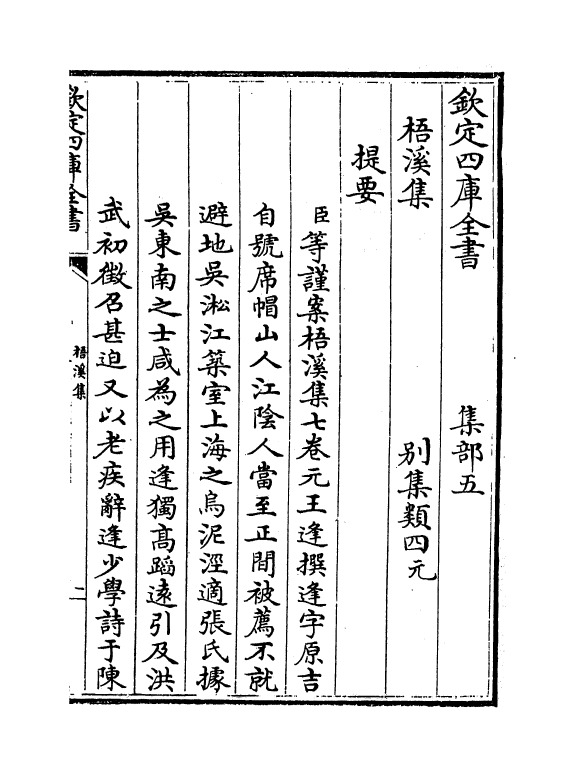 欽定四庫全書　集部五
梧溪集　別集類四元
提要
臣等謹案梧溪集七卷元王逢撰逢字原吉
自號席帽山人江陰人當至正間被薦不就
避地吳淞江築室上海之烏泥涇適張氏據
吳東南之士咸為之用逢獨高蹈遠引及洪
武初徵召甚迫又以老疾辭逢少學詩于陳
欽定四庫全書
梧溪集
二